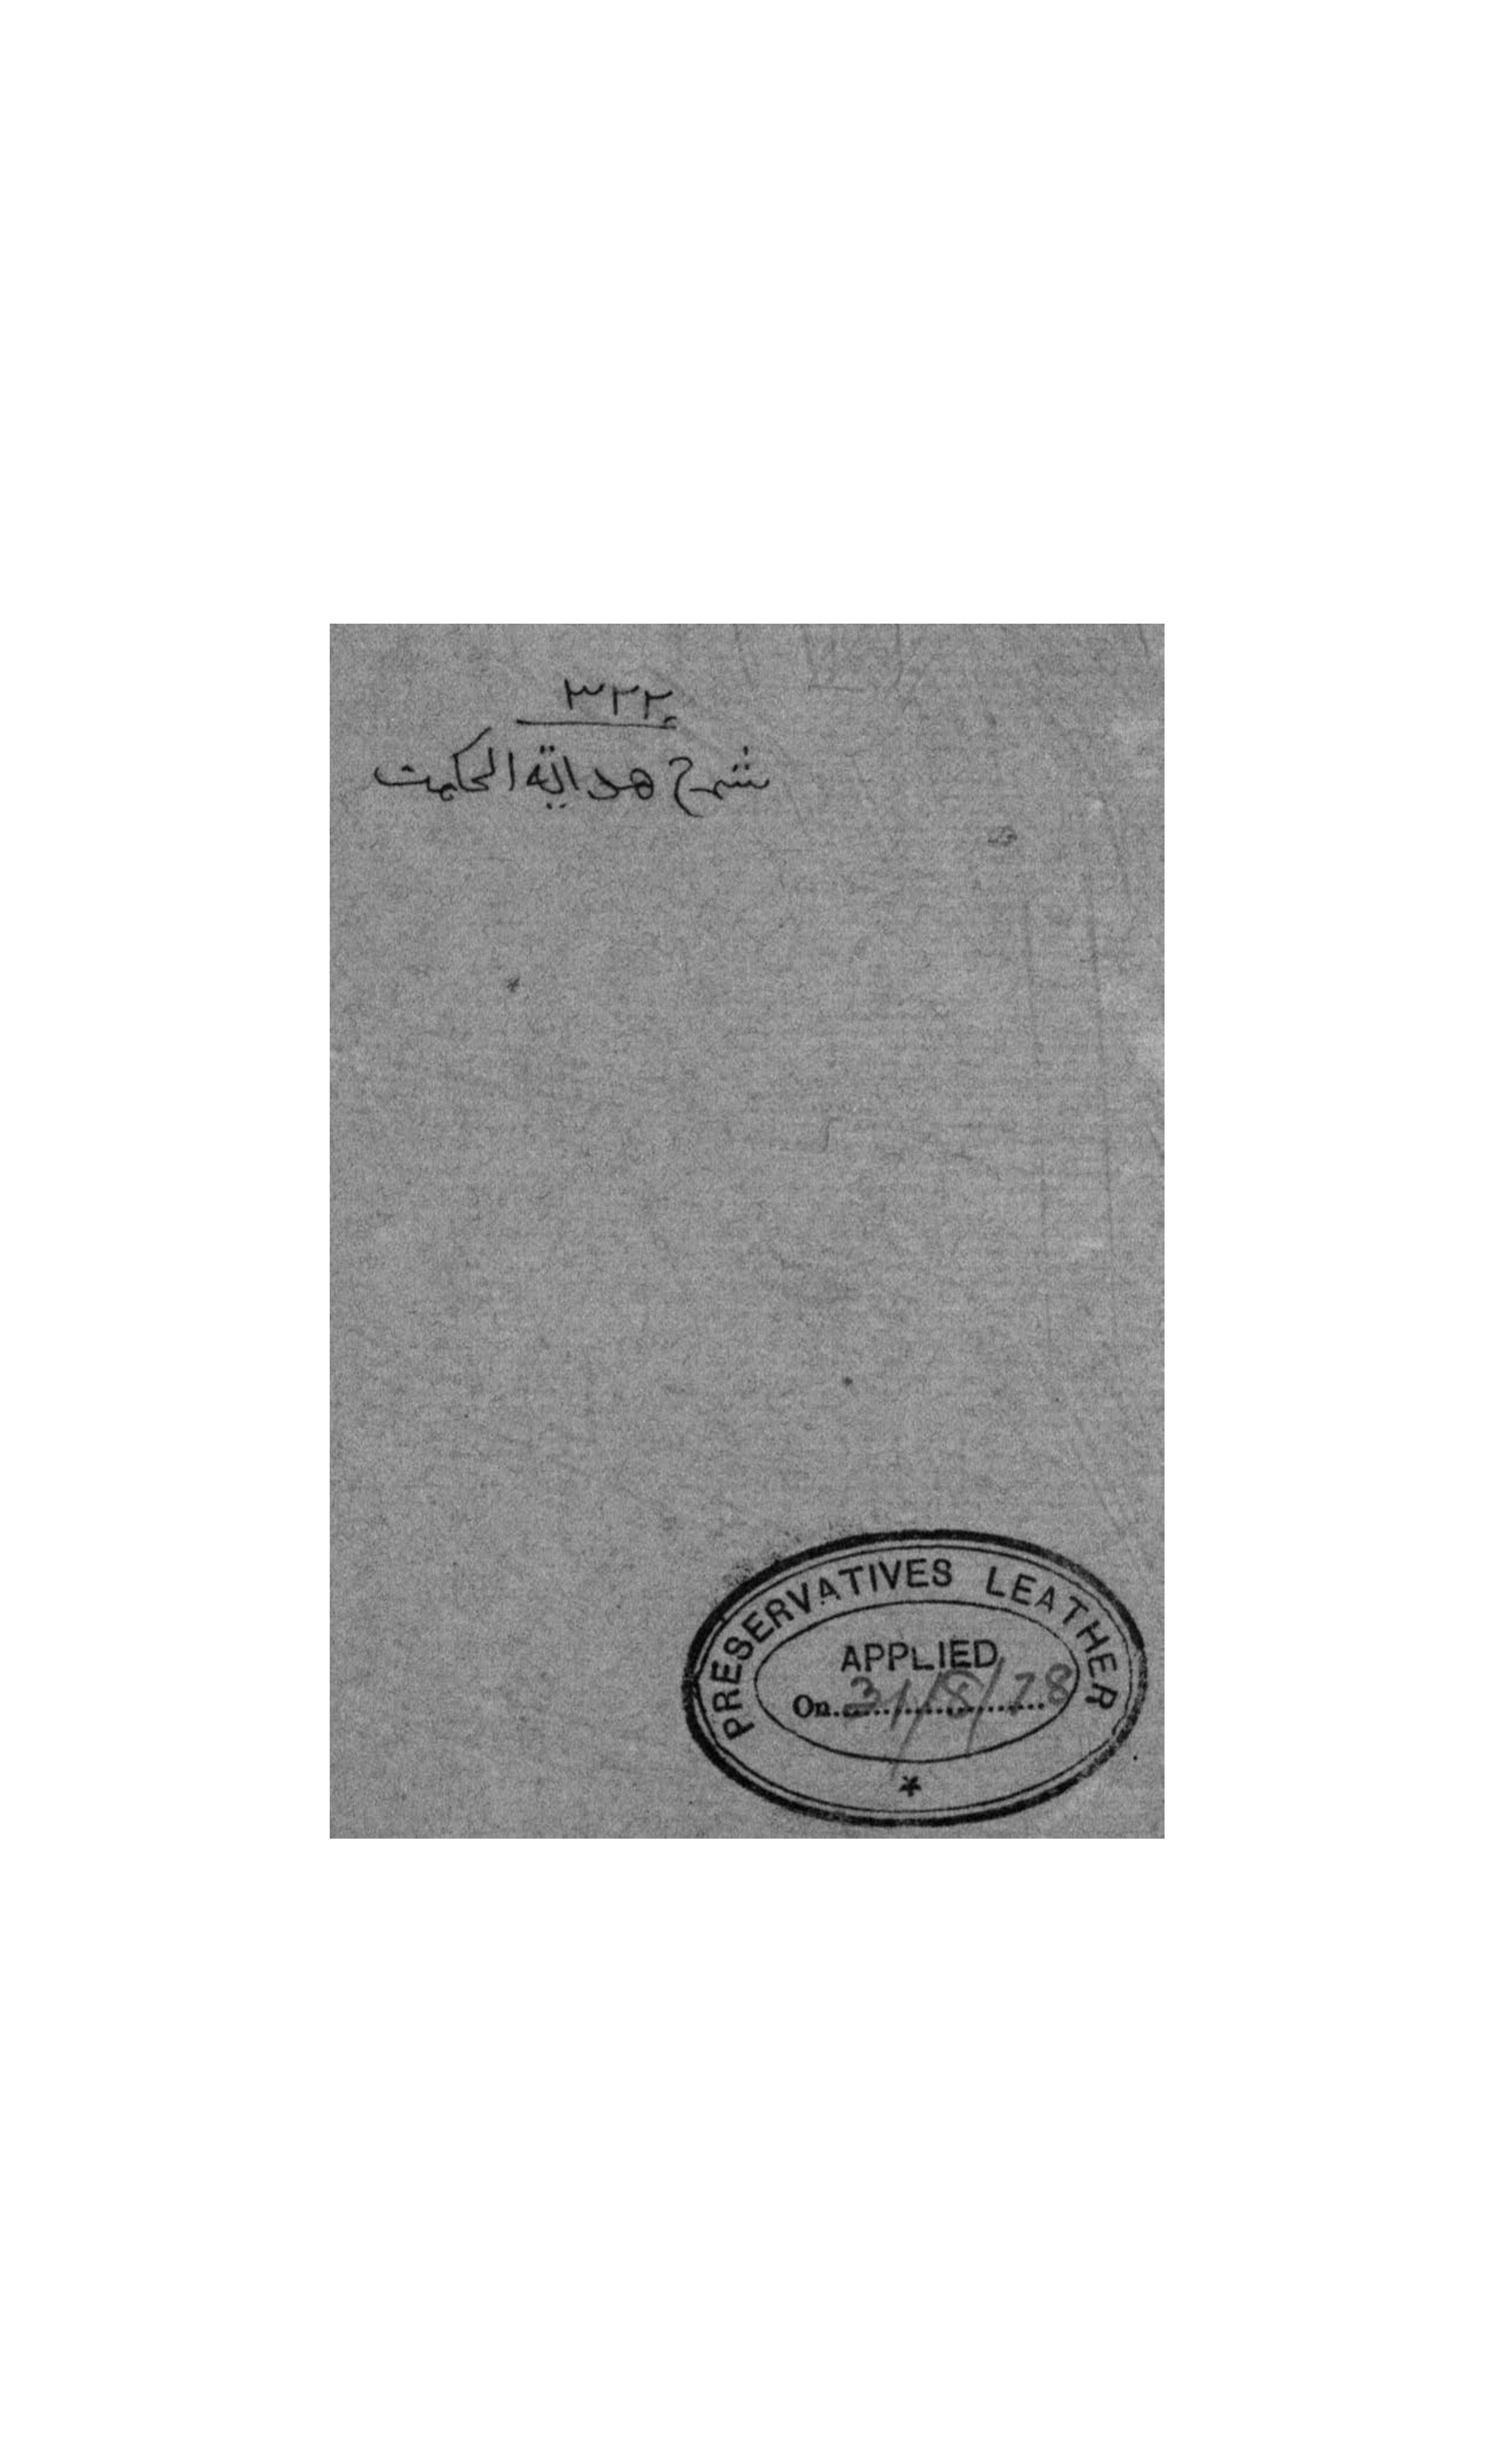 ۳۲۲
شرح هدایة الحکمت
PRESERVATIVES LEATHER
APPLIED
On 31/8/78